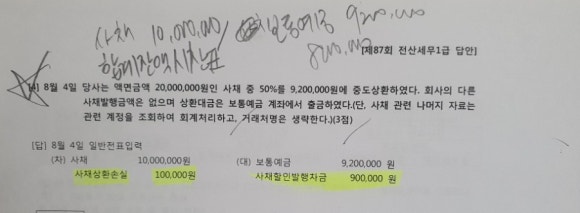 사채 10,000,000 보통예금 9200,000
합계잔액시산표 800,000
[제87회 전산세무1급 답안]
[4] 8월 4일 당사는 액면금액 20,000,000원인 사채 중 50%를 9,200,000원에 중도상환하였다. 회사의 다른
사채발행금액은 없으며 상환대금은 보통예금 계좌에서 출금하였다.(단, 사채 관련 나머지 자료는
관련 계정을 조회하여 회계처리하고, 거래처명은 생략한다.)(3점)
[답] 8월 4일 일반전표입력
(차) 사채 10,000,000원 (대) 보통예금 9,200,000 원
사채상환손실 100,000원 사채할인발행차금 900,000 원